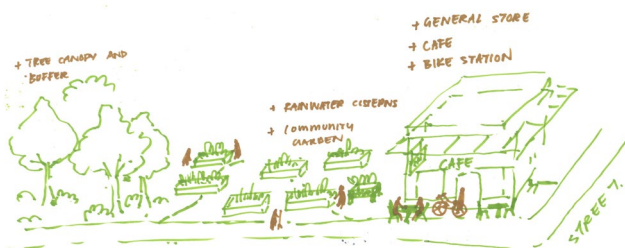 + TREE CANOPY AND
BUFFER
+ RAINWATER CISTERNS
+ COMMUNITY
GARDEN
+ GENERAL STORE
+ CAFE
+ BIKE STATION
CAFE
STREET 7.